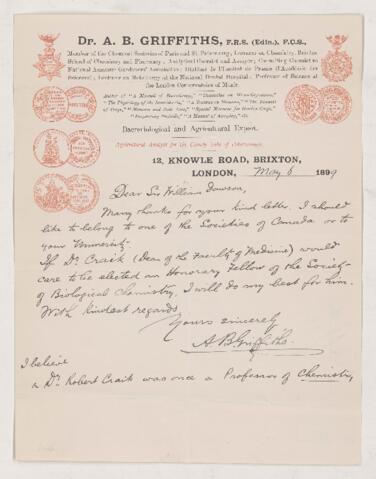 Dr. A. B. GRIFFITHS, F.R.S. (Edin.), F.C.S.,
Member of the Chemical Societies of Paris and St. Petersburg; Lecturer on Chemistry, Brixton
School of Chemistry and Pharmacy; Analytical Chemist and Assayer; Consulting Chemist to
National Amateur Gardeners' Association;
Lecturer on Metallurgy at the National Dental Hospital; Professor of Science at
the London Conservatoire of Music.
Author of "A Manual of Bacteriology,"
"The Physiology of the Invertebrata," "A Treatise on Manures," "The Diseases
of Crops," "Manures and their Uses," "Special Manures for Garden Crops,"
"A Manual of Assaying," etc.
Bacteriological and Agricultural Expert.
Agricultural Analyst for the County
12, KNOWLE ROAD, BRIXTON,
LONDON, May 6 1899
Dear Sir William Dawson,
Many thanks for your kind letter. I should
like to belong to one of the Societies of Canada or to
your University.
If Dr. Craik (Dean of the Faculty of Medicine) would
care to be elected an Honorary Fellow of the Society
of Biological Chemistry, I will do my best for him.
With kindest regards
Yours sincerely
A. B. Griffiths.
I believe
a Dr. Robert Craik was once a Professor of Chemistry